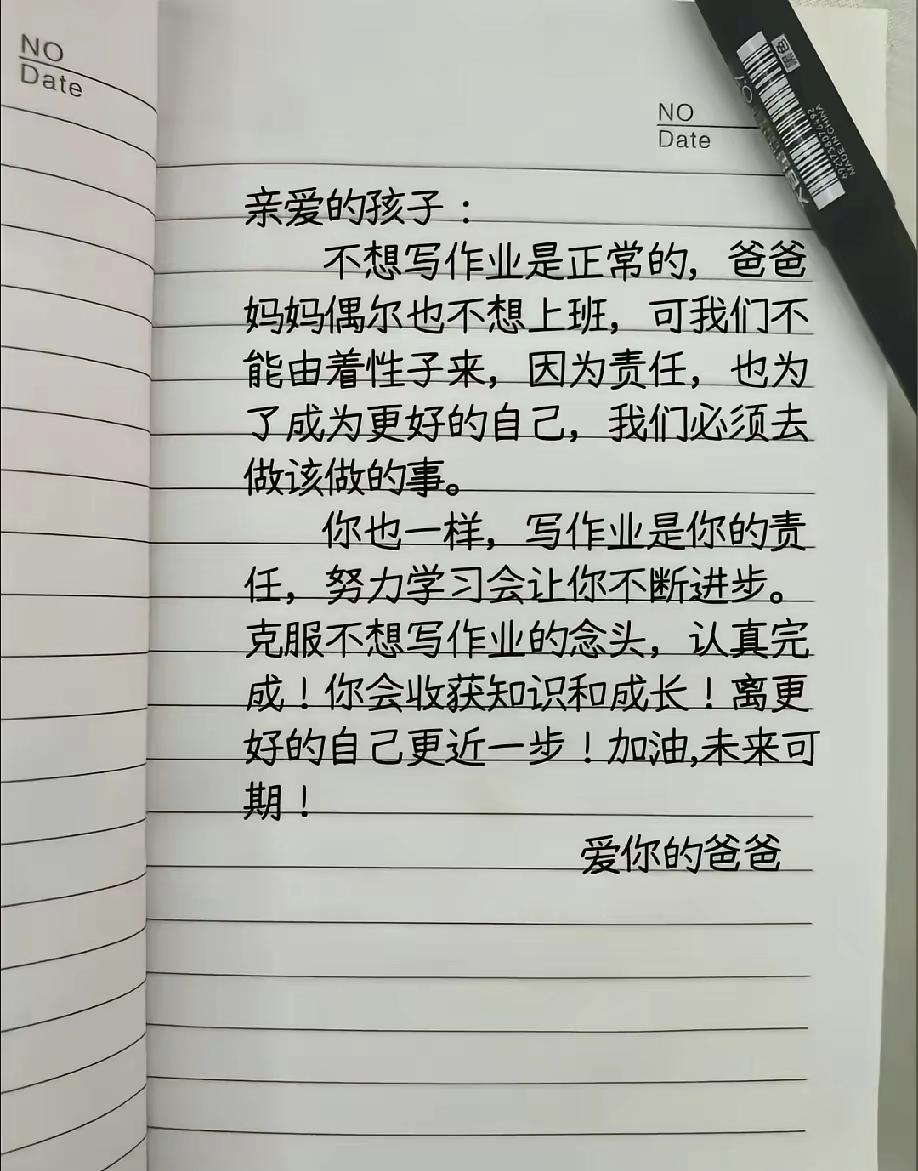 NO
Date
NO
Date
亲爱的孩子：
不想写作业是正常的，爸爸
妈妈偶尔也不想上班，可我们不
能由着性子来，因为责任，也为
了成为更好的自己，我们必须去
做该做的事。
你也一样，写作业是你的责
任，努力学习会让你不断进步。
克服不想写作业的念头，认真完
成！你会收获知识和成长！离更
好的自己更近一步！加油,未来可
期！
爱你的爸爸
MADE IN CHINA